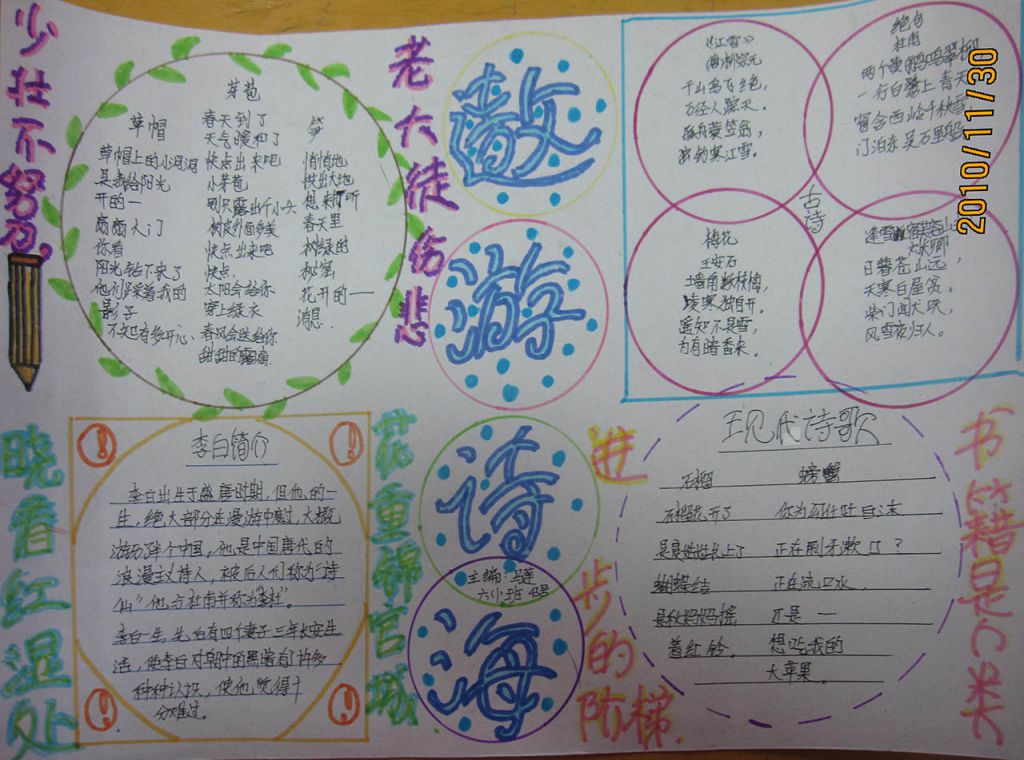 少壮不努力，
老大徒伤悲
遨
游
诗
海
主编：
六小班
草帽
草帽上的小洞洞
是我给阳光
开的一
扇扇小门
你看
阳光钻下来了
他们踩着我的
影子
不知有多开心
芽苞
春天到了
天气暖和了
快点出来吧
小芽苞
别只露出个小头
树皮外面多美
快点出来吧
快点
太阳会给你
穿上绿衣
春风会送给你
甜甜的露滴
笋
悄悄地
拱出大地
想来听听
春天里
树绿的
秘密
花开的一
消息
古诗
《江雪》
千山鸟飞绝，
万径人踪灭。
孤舟蓑笠翁，
独钓寒江雪。
绝句
杜甫
两个黄鹂鸣翠柳
一行白鹭上青天
窗含西岭千秋雪
门泊东吴万里船
梅花
王安石
墙角数枝梅，
凌寒独自开。
遥知不是雪，
为有暗香来。
逢雪宿芙蓉山
刘长卿
日暮苍山远，
天寒白屋贫。
柴门闻犬吠，
风雪夜归人。
2010/11/30
晓看红湿处
花重锦官城
李白简介
李白出生于盛唐时期，但他的一
生，绝大部分在漫游中度过，大概
游历了半个中国，他是中国唐代的
浪漫主义诗人，被后人们称为“诗
仙”他与杜甫并称为“李杜”。
李白一生，先后有四个妻子三年长安生
活，使李白对朝中的黑暗有了许多
种种认识，使他觉得十
分难过。
现代诗歌
石榴
石榴花开了
是是姑姑扎上了
蝴蝶结
是秋妈妈摇
着红铃。
螃蟹
你为何吐白沫
正在刷牙漱口？
正在流口水，
还是一
想吃我的
大苹果。
书籍是人类
进步的
阶梯.